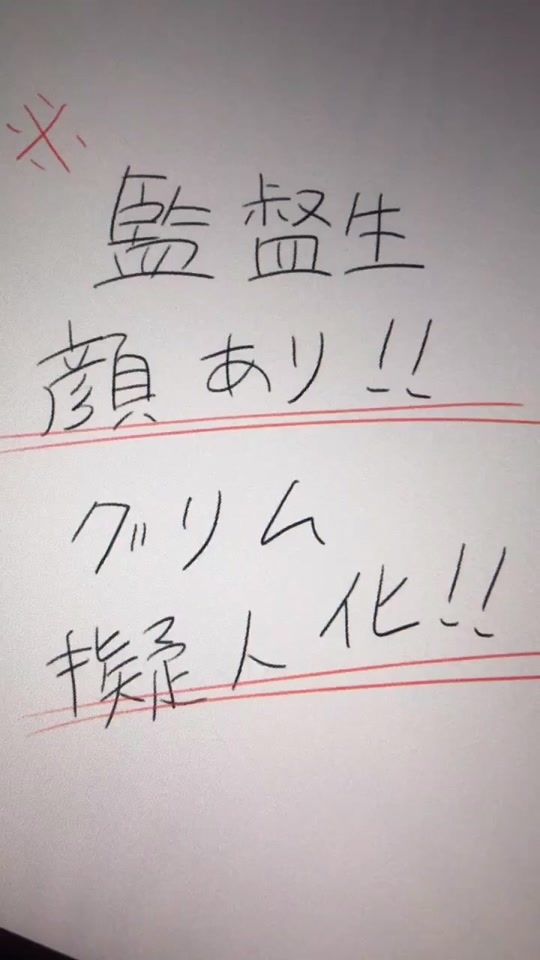 ※
監督生
顔あり!!
グリム
擬人化!!